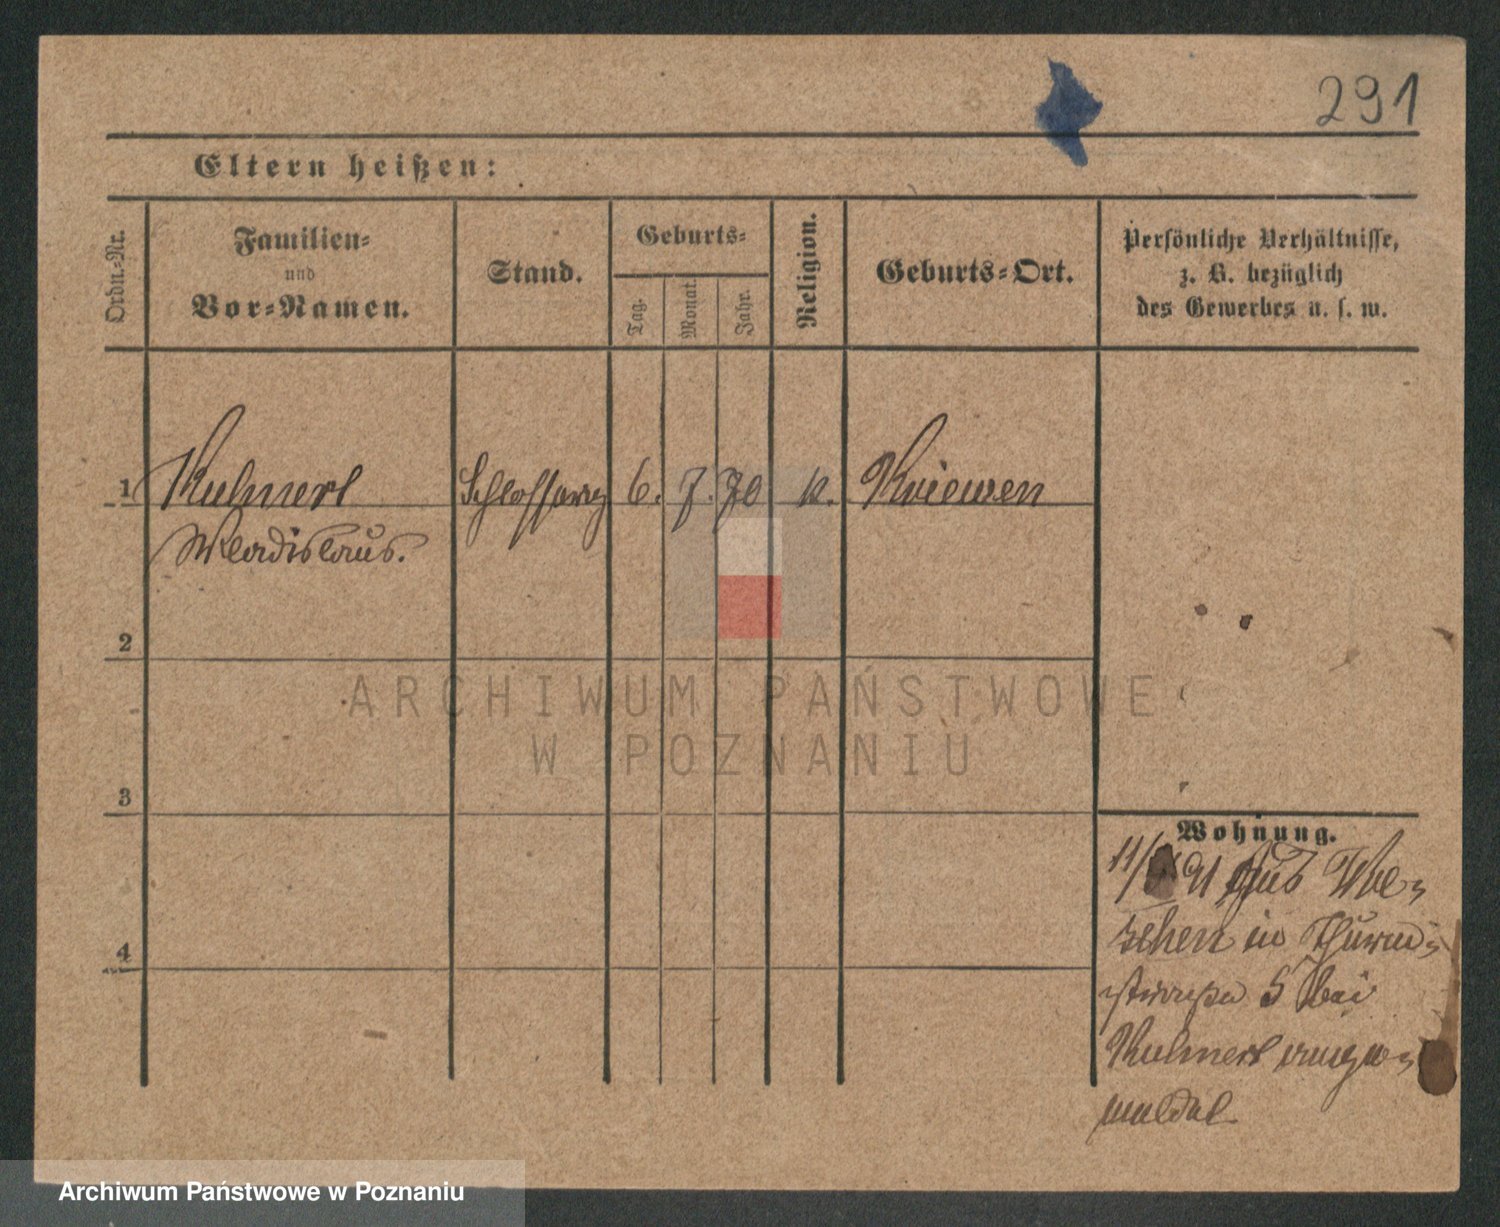 291
Eltern heißen:
Ordn.-Nr.
Familien-
und
Vor-Namen.
Stand.
Geburts-
Tag.
Monat.
Jahr.
Religion.
Geburts-Ort.
Persönliche Verhältnisse,
z. B. bezüglich
des Gewerbes u. s. w.
1 Kulmert Schlosserg 6. 7. 70 k. Kriewen
Wladislaus.
2
ARCHIWUM PAŃSTWOWE
W POZNANIU
3
Wohnung.
11/ 91 aus Wre-
schen in Thurm-
straße 5 bei
Kulmert ange-
meldet
4
Archiwum Państwowe w Poznaniu